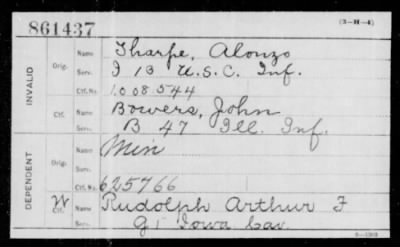 861437
(3-H-4)
INVALID
Orig.
Name Tharpe, Alonzo
Serv. I 13 U.S.C. Inf.
Ctf. No. 1.008.544
Ctf.
Name Bowers, John
Serv. B 47 Ill. Inf.
DEPENDENT
Orig.
Name Min
Serv.
Ctf. No. 625766
W
Ctf.
Name Rudolph Arthur F
Serv. G 1 Iowa Cav